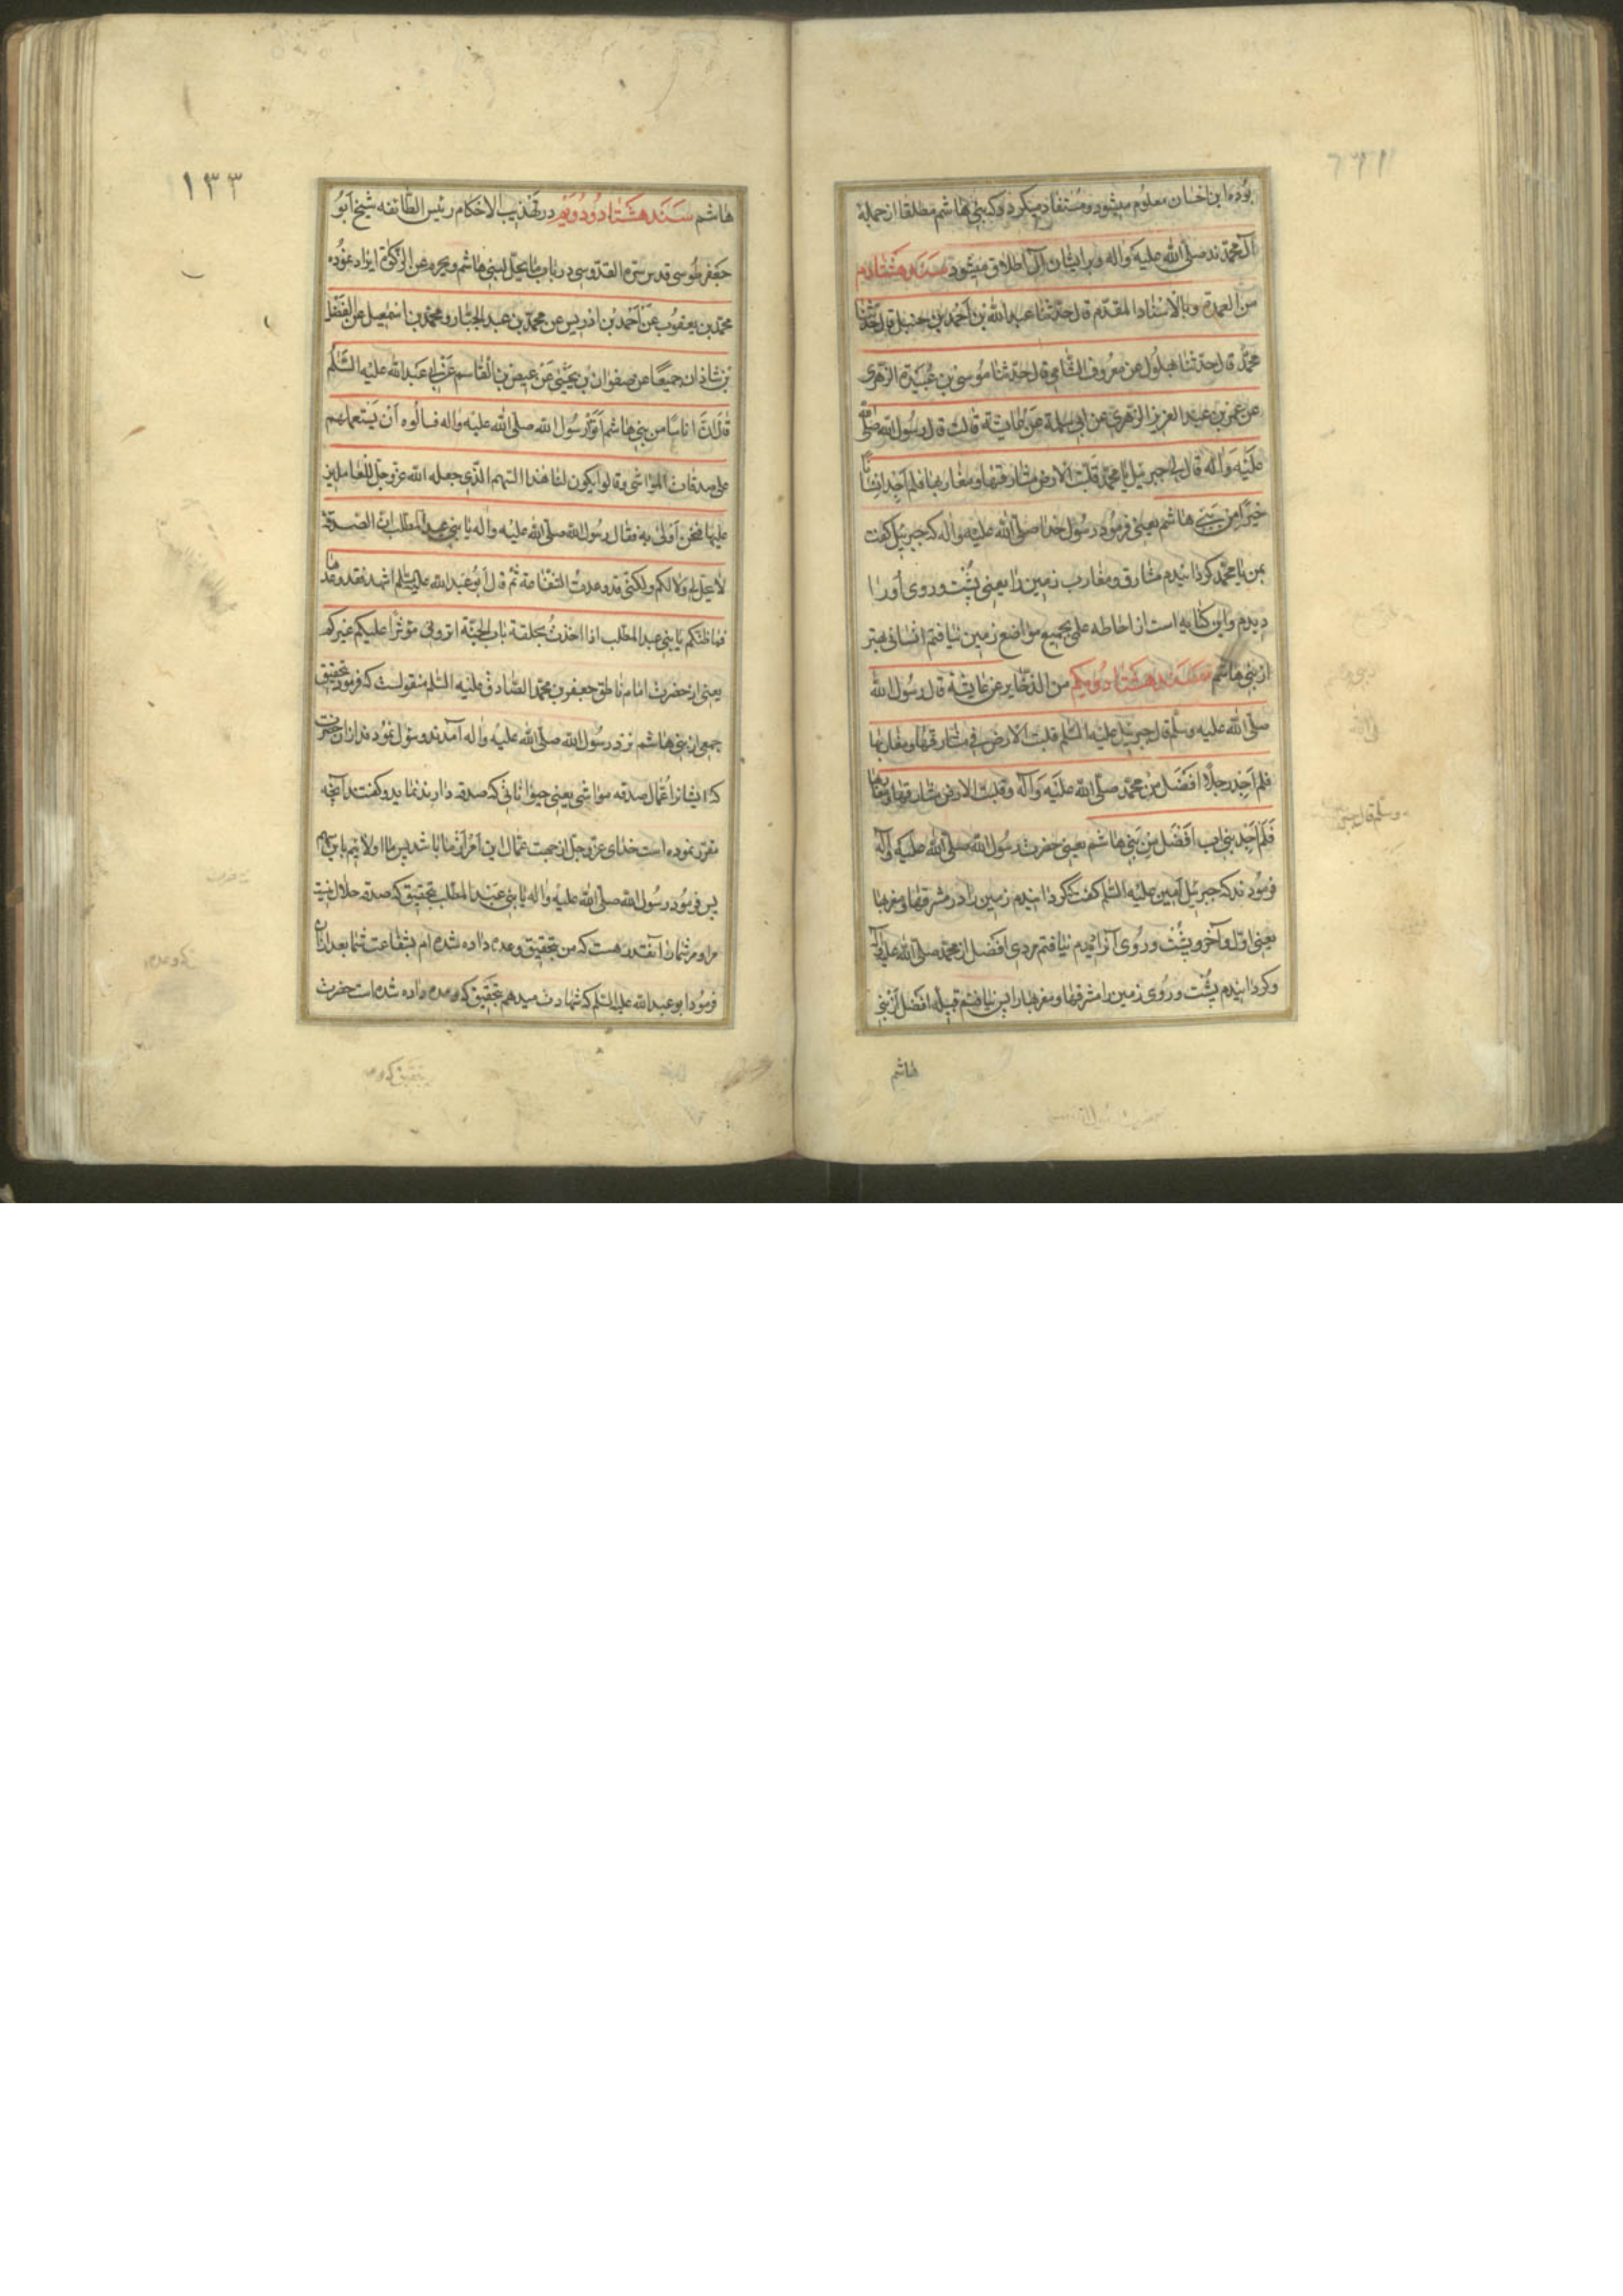 بوده ازین اخسان معلوم میشود و مستفاد میکردد که بنی هاشم مطلقا از جملهٔ
آل محمدند صلی الله علیه واله وبر ایشان آل اطلاق میشود سند هشتادم
من العمدة وبالاسناد المقدم قال حدثنا عبدالله بن احمد بن حنبل قال حدثنا
محمد قال حدثنا بهلول بن معروف الشامی قال حدثنا موسی بن عبیدة الزهری
عن عمر بن عبد العزیز الزهری عن ابی سلمة عن عایشة قالت قال رسول الله صلی الله
علیه واله قال لی جبرئیل یا محمد قلبت الارض مشارقها ومغاربها فلم اجد انسانا
خیرا من بنی هاشم یعنی فرمود رسول خدا صلی الله علیه واله که جبرئیل کفت
بمن یا محمد کردانیدم مشارق و مغارب زمین را یعنی پشت و روی او را
دیدم واین کنایه است از احاطه علی بجمیع مواضع زمین نیافتم انسانی بهتر
از بنی هاشم سند هشتاد و یکم من الذخایر عن عایشة قال رسول الله
صلی الله علیه وسلم قال جبرئیل علیه السلم قلبت الارض فی مشارقها ومغاربها
فلم اجد رجلا افضل من محمد صلی الله علیه وآله وقلبت الارض مشارقها ومغاربها
فلم اجد بنی اب افضل من بنی هاشم یعنی حضرت رسول الله صلی الله علیه وآله
فرمودند که جبرئیل امین علیه السلم کفت کردانیدم زمین را در مشرقها ومغربها
یعنی اول وآخر و پشت و روی آنرا دیدم نیافتم مردی افضل از محمد صلی الله علیه وآله
وکردانیدم پشت و روی زمین را مشرقها و مغربها را پس نیافتم قبیله افضل از بنی
هاشم
وسلم قال جبر
١٣٣
هاشم سند هشتاد و دویم در تهذیب الاحکام رئیس الطائفه شیخ ابو
جعفر طوسی قدس سره القدوسی در باب ما یحل لبنی هاشم ویحرم من الزکوة ایراد نموده
محمد بن یعقوب عن احمد بن ادریس عن محمد بن عبد الجبار ومحمد بن اسمعیل عن الفضل
بن شاذان جمیعا عن صفوان بن یحیی عن عیص بن القاسم عن ابی عبدالله علیه السلم
قال ان اناسا من بنی هاشم اتوا رسول الله صلی الله علیه واله فسالوه ان یستعملهم
علی صدقات المواشی وقالوا یکون لنا هذا السهم الذی جعله الله عز وجل للعاملین
علیها فنحن اولی به فقال رسول الله صلی الله علیه واله یا بنی عبد المطلب ان الصدقة
لا تحل لی ولا لکم ولکنی قد وعدت الشفاعة ثم قال ابو عبدالله علیه السلم اشهد لقد وعدها
فما ظنکم یا بنی عبد المطلب اذا اخذت بحلقة باب الجنة اترونی مؤثرا علیکم غیرکم
یعنی از حضرت امام ناطق جعفر بن محمد الصادق علیه السلم منقولست که فرمود بتحقیق
جمعی از بنی هاشم نزد رسول الله صلی الله علیه واله آمدند و سؤل نمودند از انحضرت
که ایشانرا عمال صدقه مواشی یعنی حیواناتی که صدقه دارند نماید و کفتند آنچه
مقرر نموده است خدای عز وجل از جهت عمال این امر از ما باشد پس ما اولائیم باین سهم
پس فرمود رسول الله صلی الله علیه واله یا بنی عبد المطلب بتحقیق که صدقه حلال نیست
مرا و مر شما را آنقدر هست که من بتحقیق وعده داده شده ام بشفاعت شما بعد ازان
فرمود ابو عبدالله علیه السلم که شهادت میدهم بتحقیق که وعده داده شده است حضرت
که وعده
بتحقیق که وعده